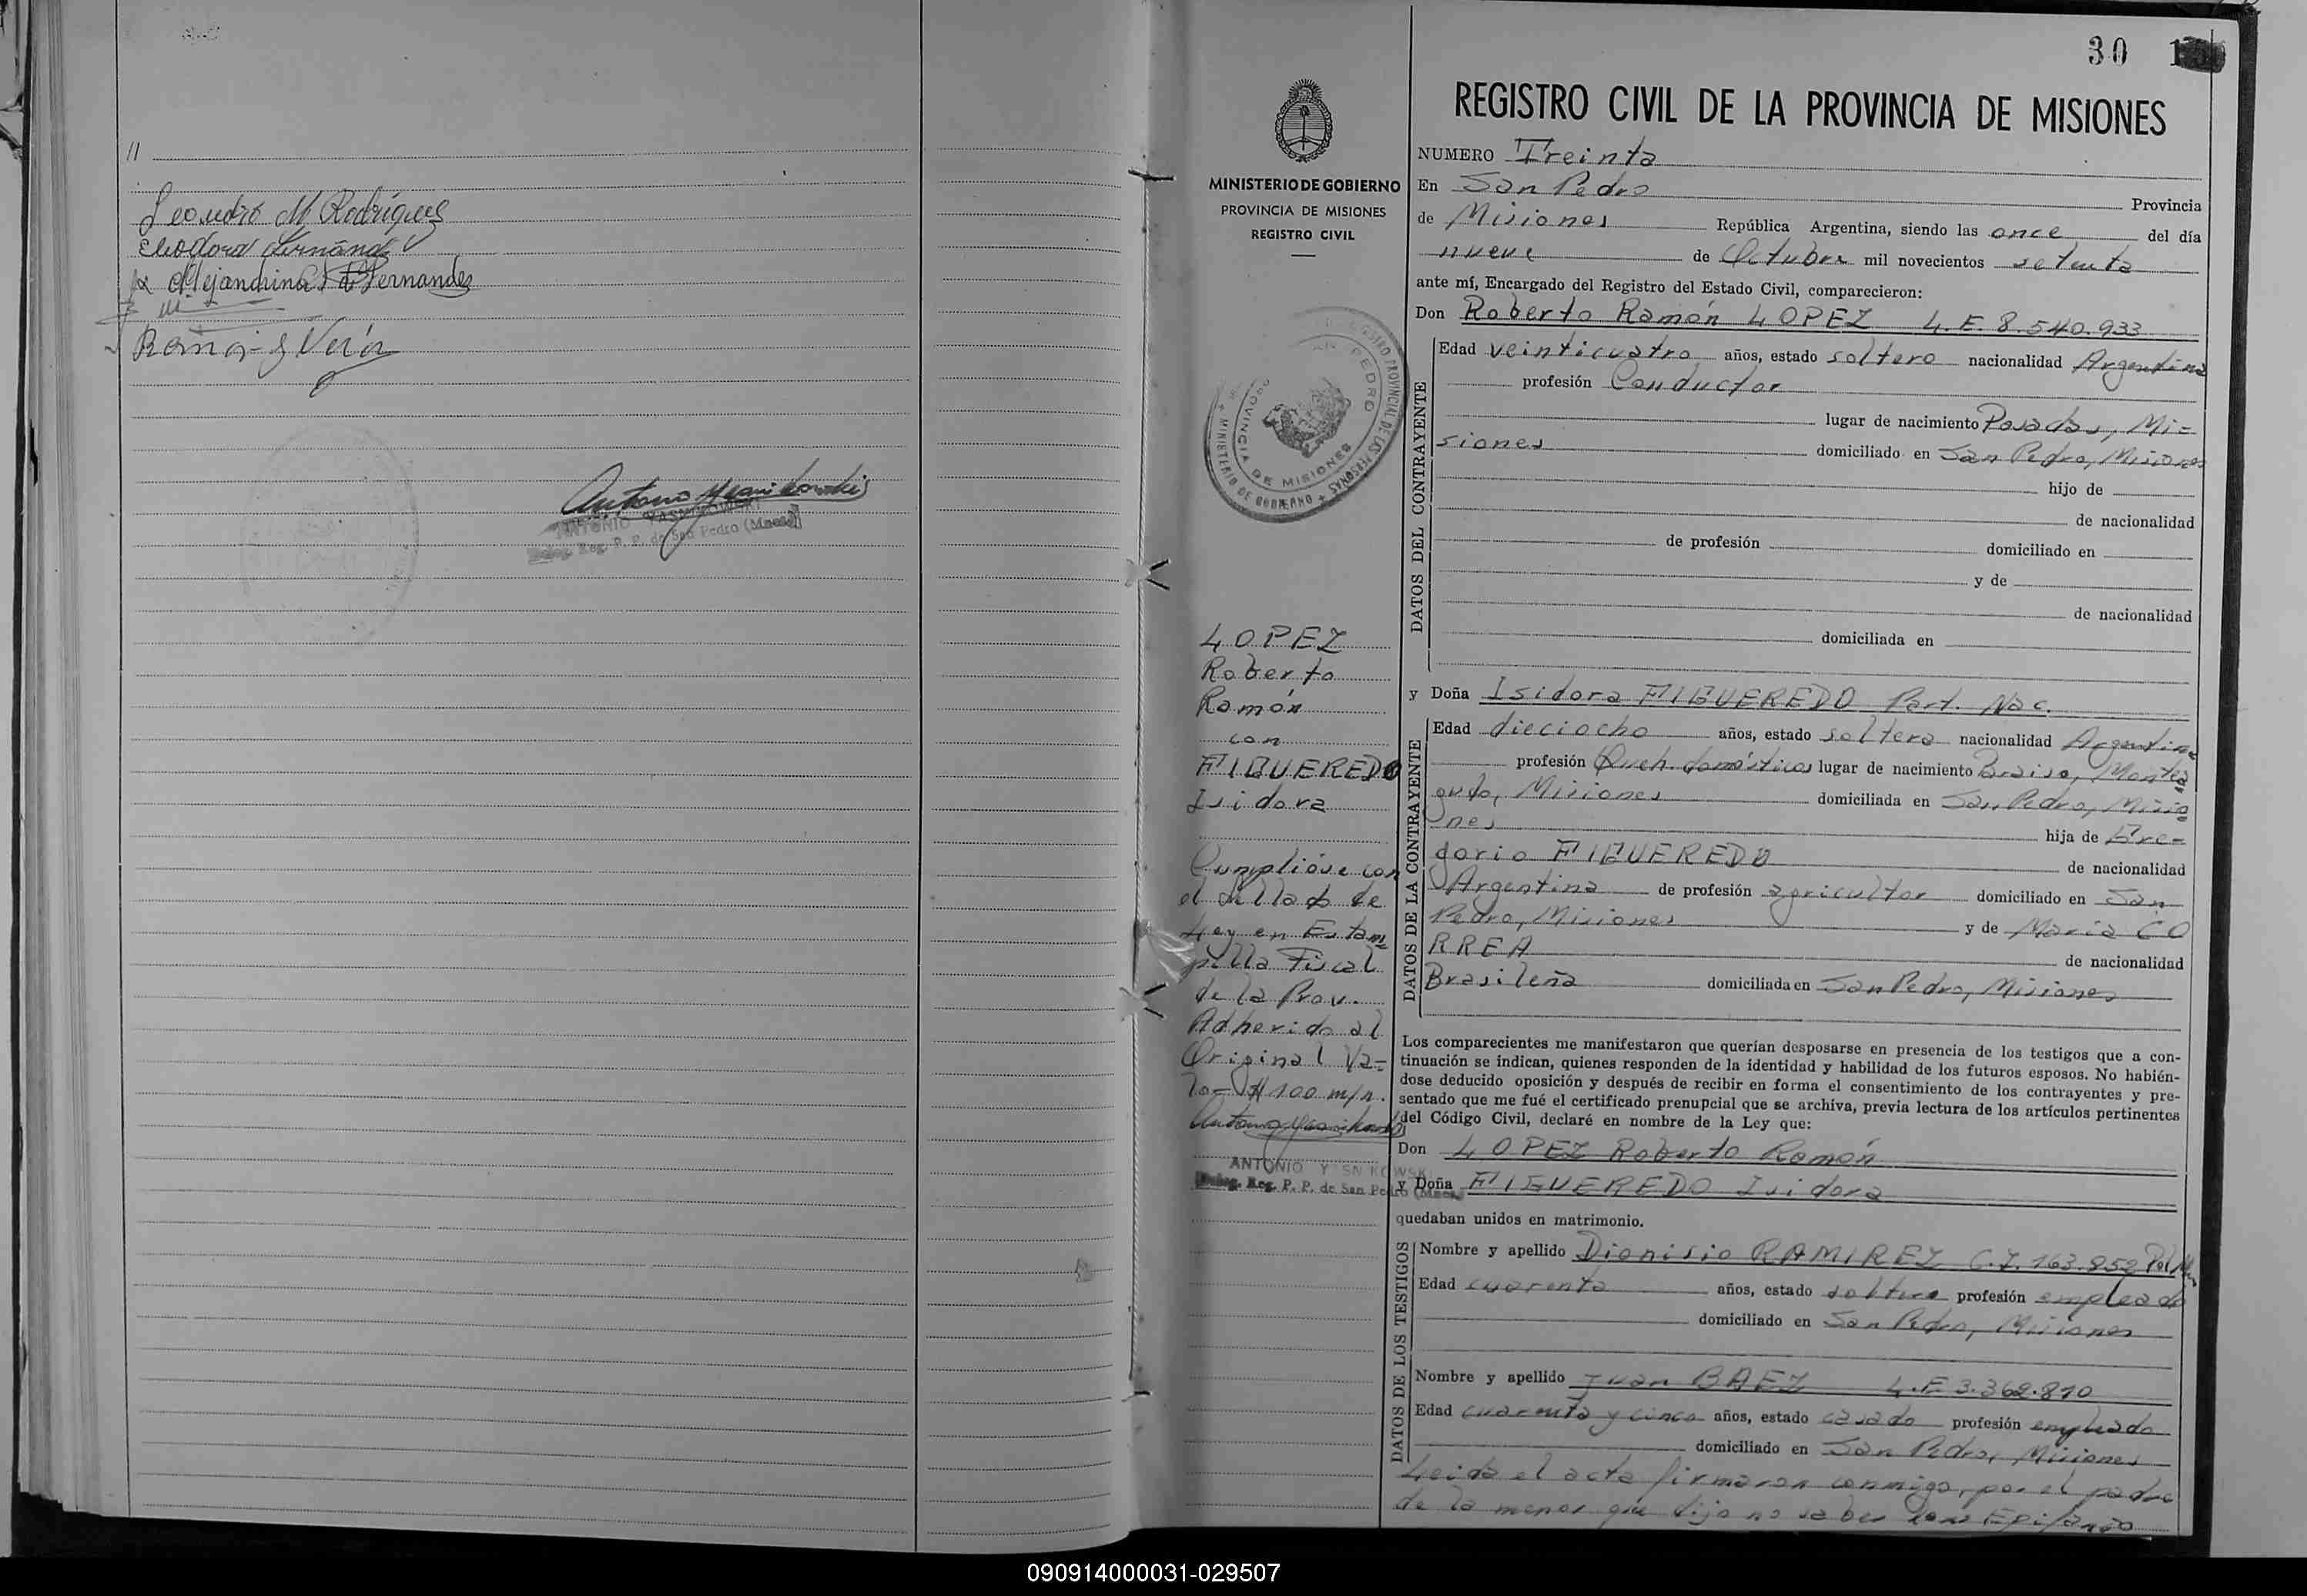 11
Leandro M Rodrigues
Eleodora Fernández
Alejandrina de Fernandez
Ramón Vera
ANTONIO YASNIKOWSKI
Deleg. Reg. P. P. de San Pedro (Mnes)
30
MINISTERIO DE GOBIERNO
PROVINCIA DE MISIONES
REGISTRO CIVIL
LOPEZ
Roberto
Ramón
con
FIGUEREDO
Isidora
Cumplióse con
el sellado de
Ley en Estam
pilla Fiscal
de la Prov.
Adherido al
Original Va=
lor $ 100 m/n.
ANTONIO YASNIKOWSKI
Deleg. Reg. P. P. de San Pedro (Mnes)
REGISTRO CIVIL DE LA PROVINCIA DE MISIONES
NUMERO Treinta
En San Pedro Provincia
de Misiones República Argentina, siendo las once del día
nueve de Octubre mil novecientos setenta
ante mí, Encargado del Registro del Estado Civil, comparecieron:
Don Roberto Ramón LOPEZ L.E. 8.540.933
DATOS DEL CONTRAYENTE
Edad veinticuatro años, estado soltero nacionalidad Argentina
profesión Conductor
lugar de nacimiento Posadas, Mi=
siones domiciliado en San Pedro, Misiones
hijo de
de nacionalidad
de profesión domiciliado en
y de
de nacionalidad
domiciliada en
y Doña Isidora FIGUEREDO Part. Nac.
DATOS DE LA CONTRAYENTE
Edad dieciocho años, estado soltera nacionalidad Argentina
profesión Queh. domésticos lugar de nacimiento Paraiso, Montea
gudo, Misiones domiciliada en San Pedro, Misio
nes hija de Gre=
gorio FIGUEREDO de nacionalidad
Argentina de profesión agricultor domiciliado en San
Pedro, Misiones y de María CO
RREA de nacionalidad
Brasileña domiciliada en San Pedro, Misiones
Los comparecientes me manifestaron que querían desposarse en presencia de los testigos que a con-
tinuación se indican, quienes responden de la identidad y habilidad de los futuros esposos. No habién-
dose deducido oposición y después de recibir en forma el consentimiento de los contrayentes y pre-
sentado que me fué el certificado prenupcial que se archiva, previa lectura de los artículos pertinentes
del Código Civil, declaré en nombre de la Ley que:
Don LOPEZ Roberto Ramón
y Doña FIGUEREDO Isidora
quedaban unidos en matrimonio.
DATOS DE LOS TESTIGOS
Nombre y apellido Dionisio RAMIREZ C.I. 163.852 Pol.
Edad cuarenta años, estado soltero profesión empleado
domiciliado en San Pedro, Misiones
Nombre y apellido Juan BAEZ L.E 3.362.810
Edad cuarenta y cinco años, estado casado profesión empleado
domiciliado en San Pedro, Misiones
Leida el acta firmaron conmigo, por el padre
de la menor que dijo no saber Epifanio
090914000031-029507